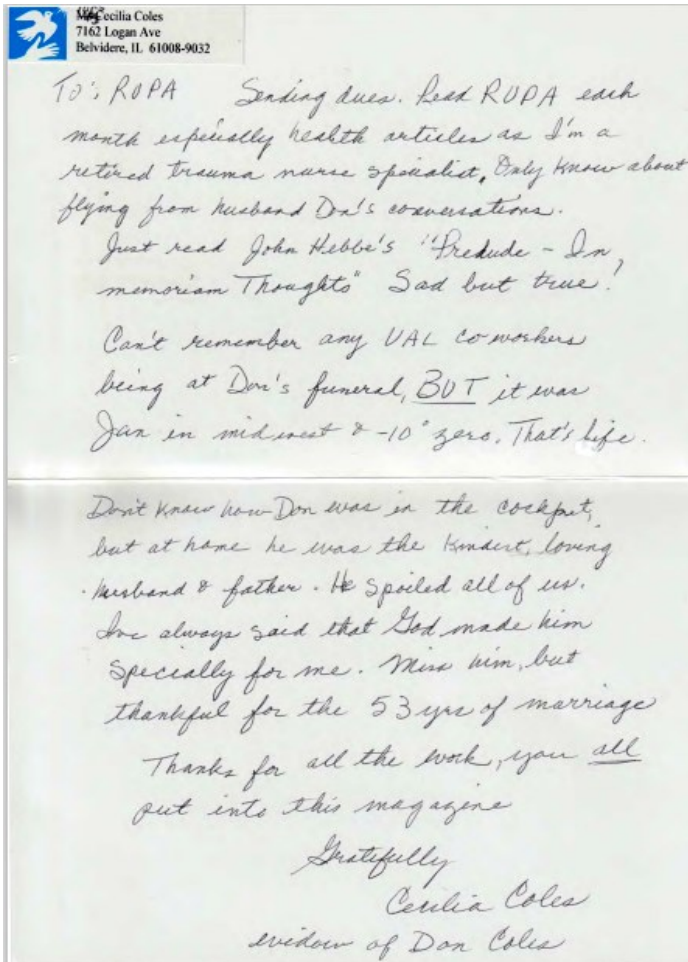 Cecilia Coles
7162 Logan Ave
Belvidere, IL 61008-9032
To: RUPA Sending dues. Read RUPA each
month especially health articles as I'm a
retired trauma nurse specialist. Only know about
flying from husband Don's conversations.
Just read John Hebbe's "Predude - In
memoriam Thoughts" Sad but true!
Can't remember any UAL coworkers
being at Don's funeral, BUT it was
Jan in midwest & -10° zero. That's life.
Don't know how Don was in the cockpit,
but at home he was the kindest, loving
husband & father. He spoiled all of us.
I've always said that God made him
specially for me. Miss him, but
thankful for the 53 yrs of marriage
Thanks for all the work, you all
put into this magazine
Gratefully
Cecilia Coles
widow of Don Coles